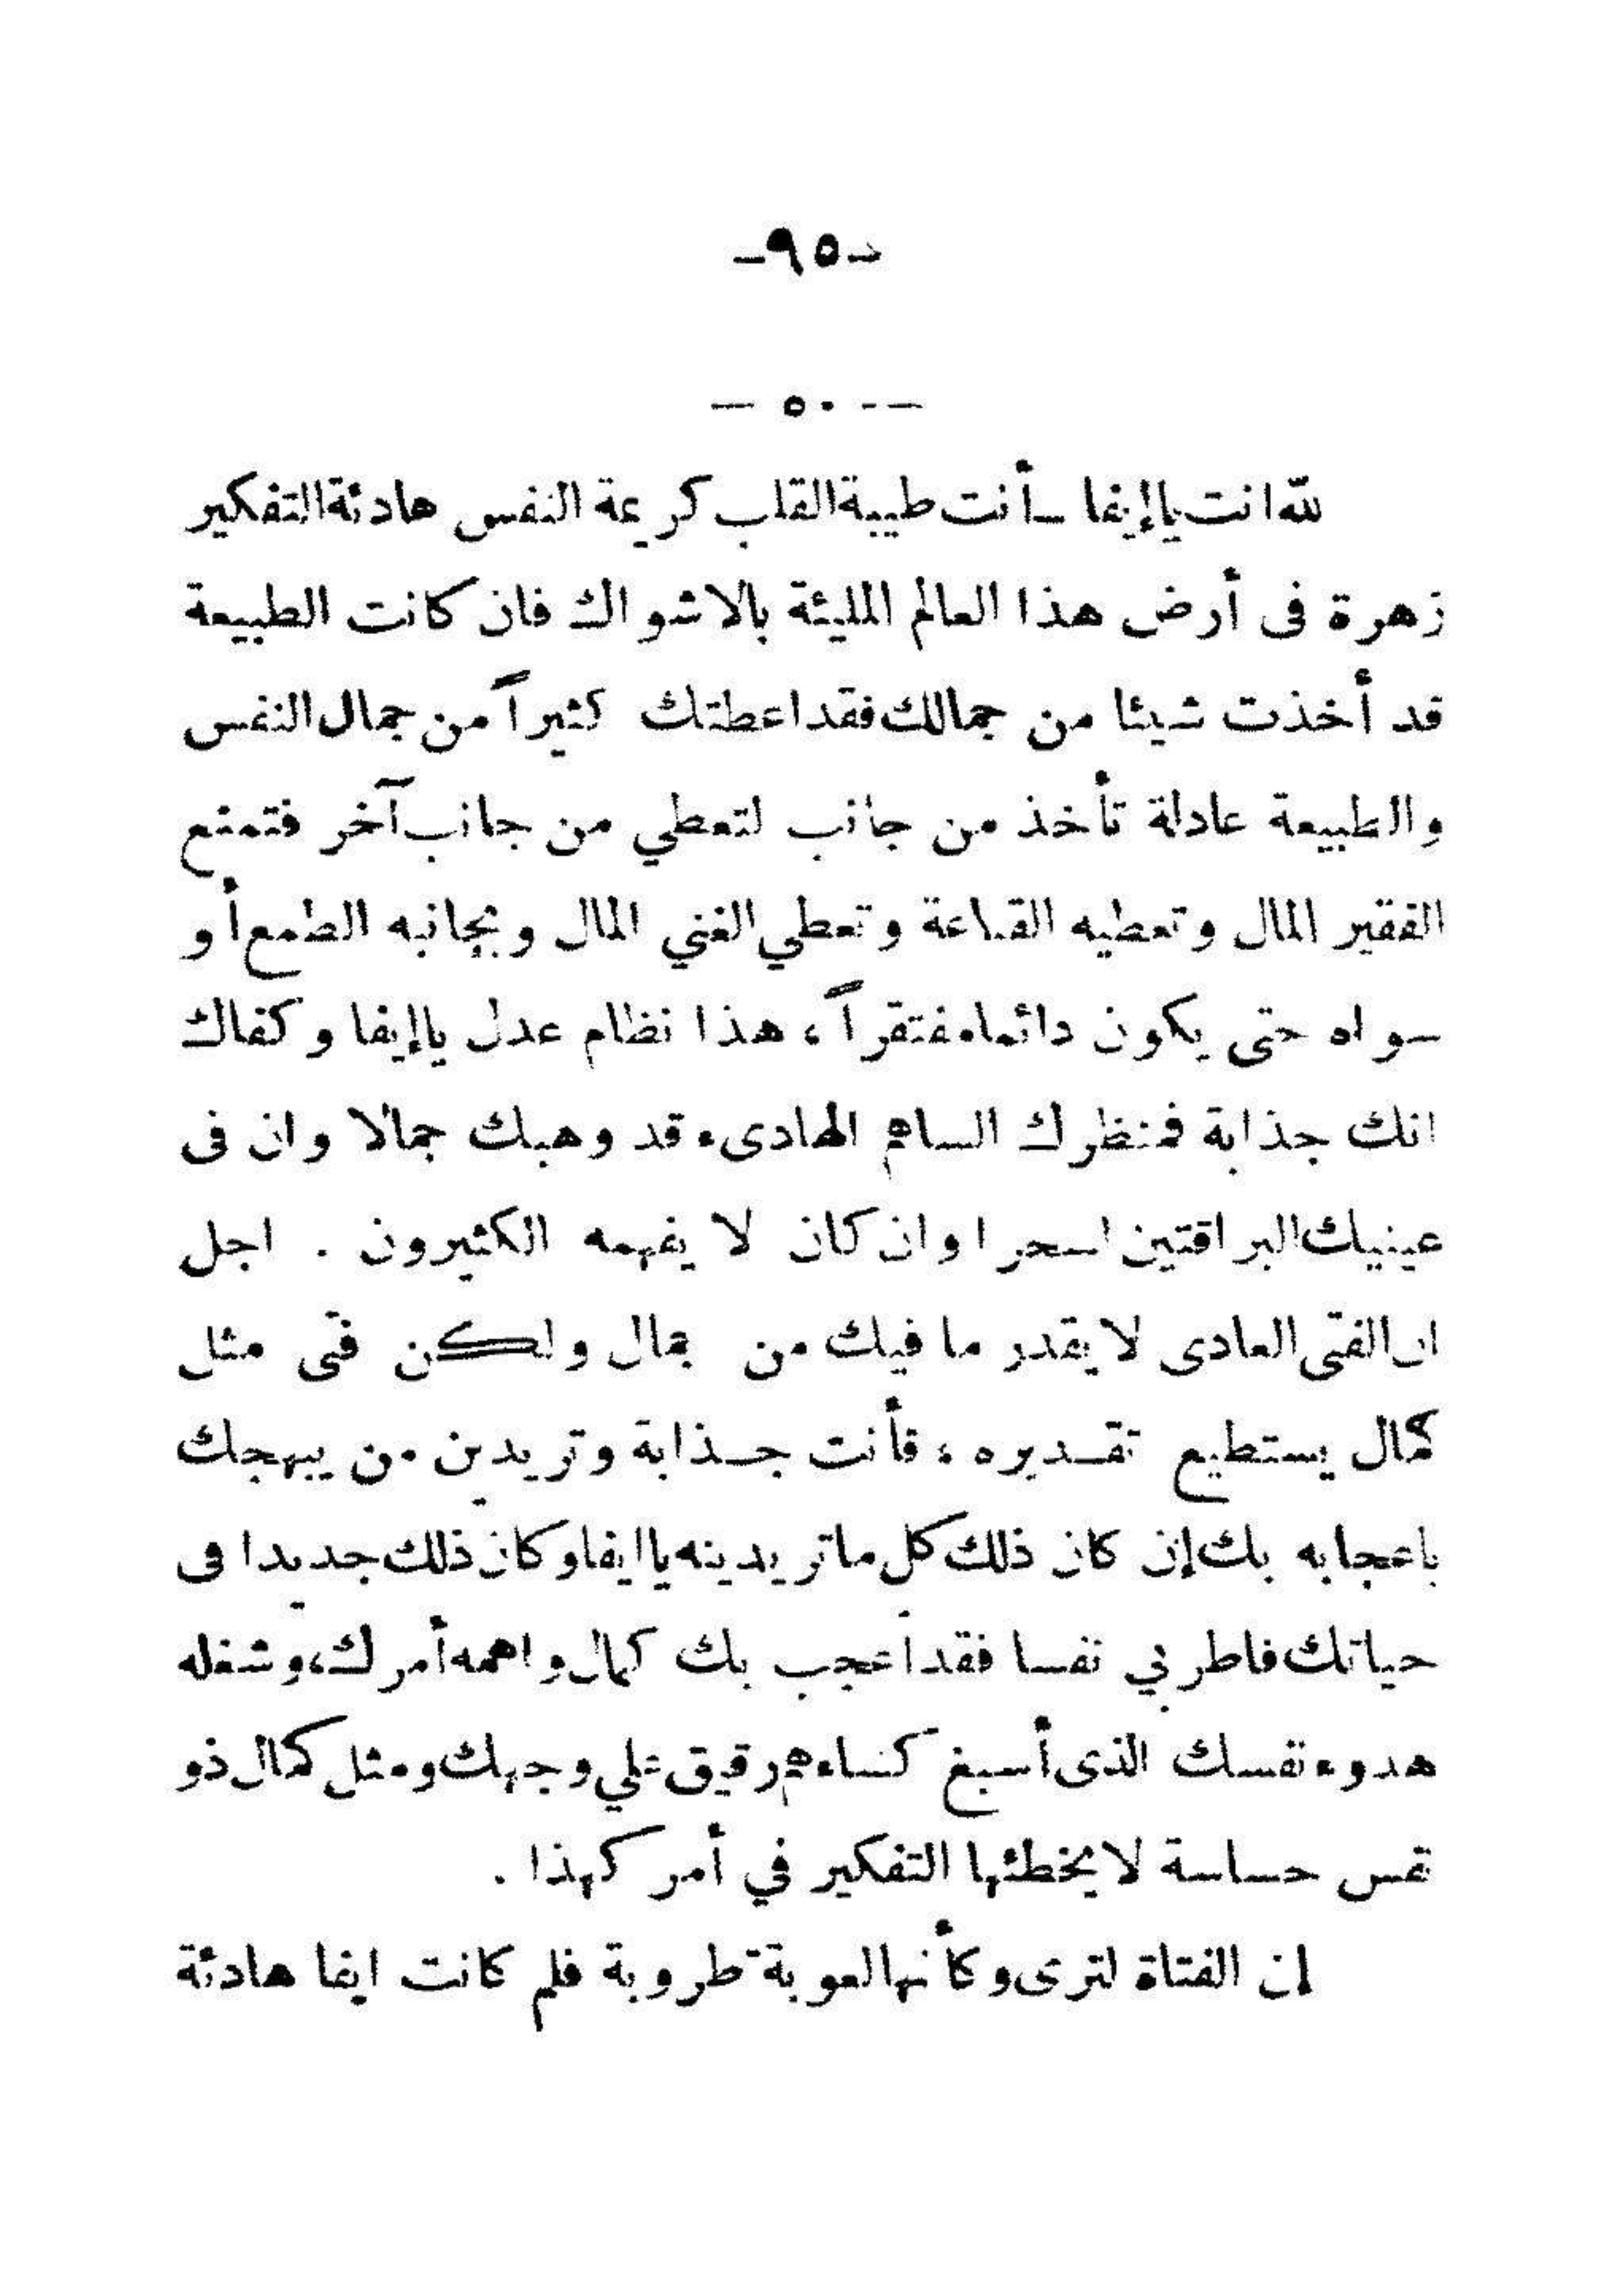 -٩٥-
— ٥٠ —
لله انت ياإيفا ــ أنت طيبة القلب كريمة النفس هادئة التفكير
زهرة فى أرض هذا العالم المليئة بالاشواك فان كانت الطبيعة
قد أخذت شيئا من جمالك فقد اعطتك كثيراً من جمال النفس
والطبيعة عادلة تأخذ من جانب لتعطي من جانب آخر فتمنع
الفقير المال وتعطيه القناعة وتعطي الغني المال وبجانبه الطمع أو
سواه حتى يكون دائما مفتقراً ، هذا نظام عدل ياإيفا وكفاك
انك جذابة فمنظرك الساهم الهادىء قد وهبك جمالا وان فى
عينيك البراقتين لسحرا وان كان لا يفهمه الكثيرون . اجل
ان الفتى العادى لا يقدر ما فيك من جمال ولكن فتى مثل
كمال يستطيع تقـدیره ، فأنت جـذابة وتريدين من يبهجك
باعجابه بك إن كان ذلك كل ماتريدينه ياايفا وكان ذلك جديدا فى
حياتك فاطربي نفسا فقد أعجب بك كمال واهمه أمرك، وشغله
هدوء نفسك الذى أسبغ كساء هم رقيق علي وجهك ومثل كمال ذو
نفس حساسة لا يخطئها التفكير في أمر كهذا .
إن الفتاة لترى وكأنها لعوبة طروبة فلم كانت ايفا هادئة